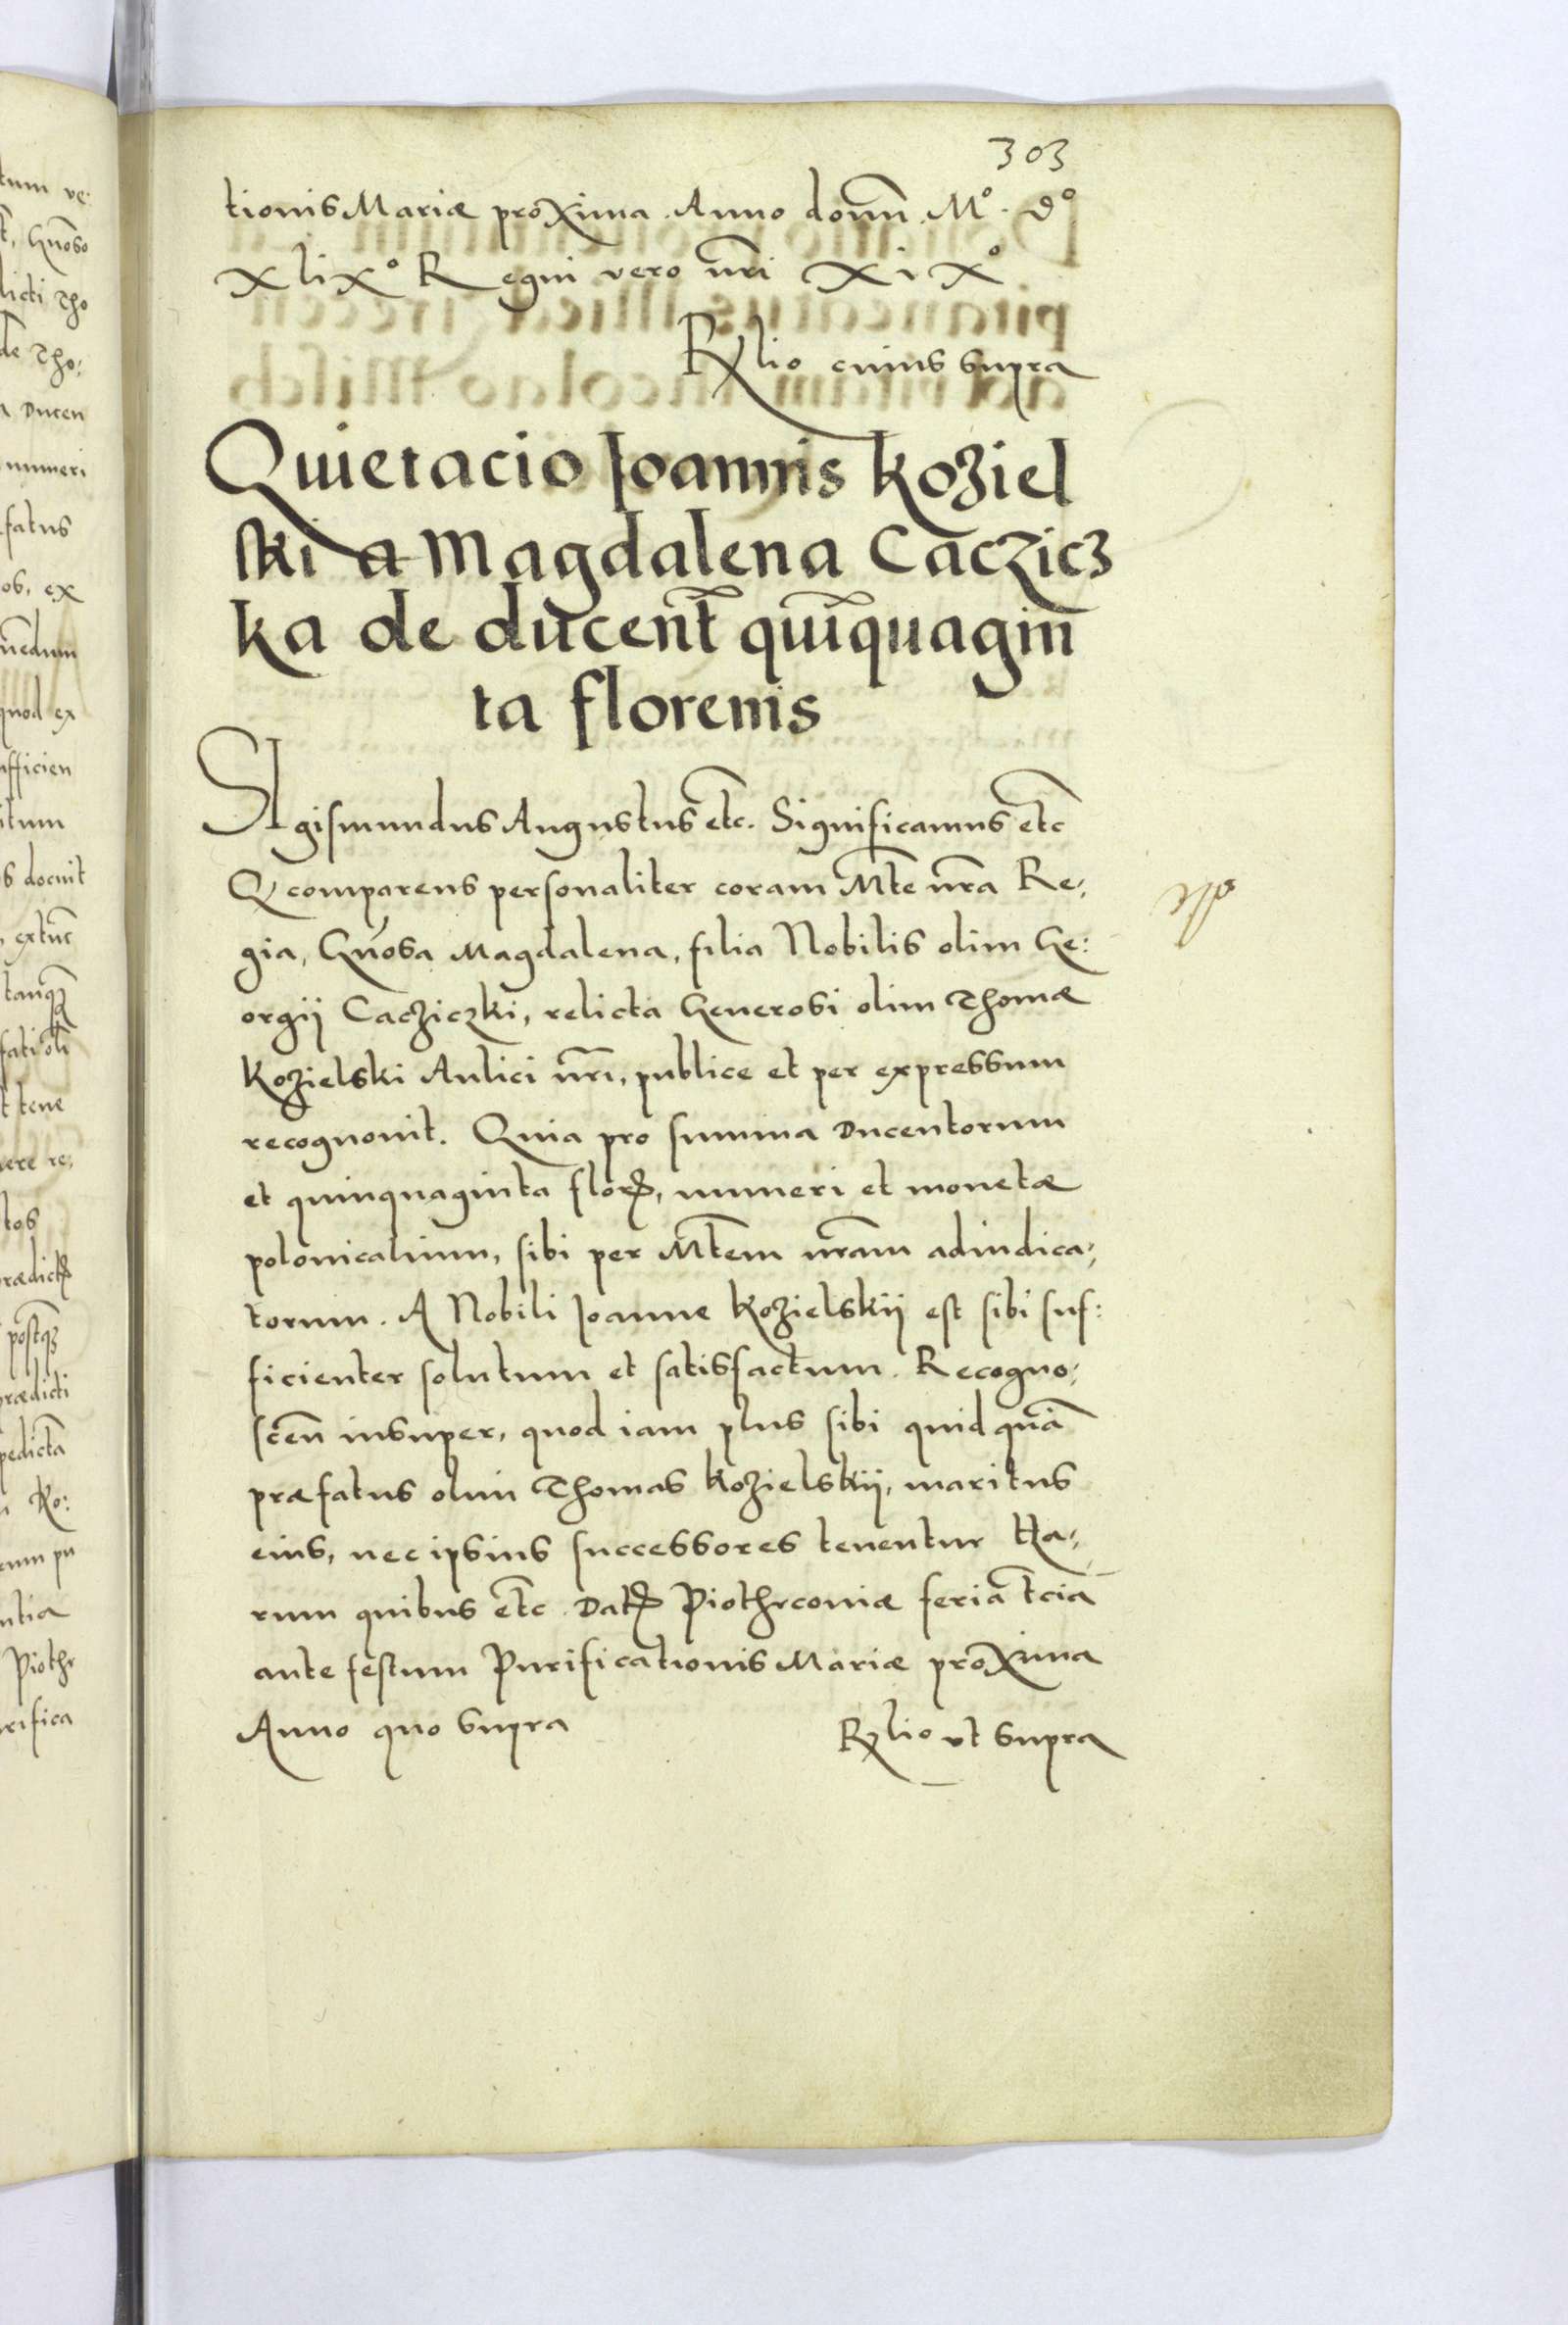 303
tionis Mariæ proxima. Anno domn̄ M°. D°
xlix° Regni vero nr̄i xix°
Rlio cuius supra
Quietacio Joannis Koziel
ski a Magdalena Caczicz
ka de ducent̄ quīquagin
ta florenis
SIgismundus Augustus etc̄. Significamus etc̄
Q comparens personaliter coram Mt̄e nr̄a Re,
gia, Gn̄osa Magdalena, filia Nobilis olim Ge:
orgij Cacziczki, relicta Generosi olim Thomæ
Kozielski Aulici nr̄i, publice et per expressum
recognouit. Quia pro summa Ducentorum
et quinquaginta flor, numeri et monetæ
polonicalium, sibi per Mt̄em nr̄am adiudica,
torum. A Nobili Joanne Kozielskij est sibi suf:
ficienter solutum et satisfactum. Recogno,
scen̄ insuper, quod iam plus sibi quid quā
præfatus olim Thomas Kozielskij, maritus
eius, nec ipsius successores tenentur Ha,
rum quibus etc̄. Dat Piothrconiæ feria t̄cia
ante festum Purificationis Mariæ proxima
Anno quo supra Rlio vt supra